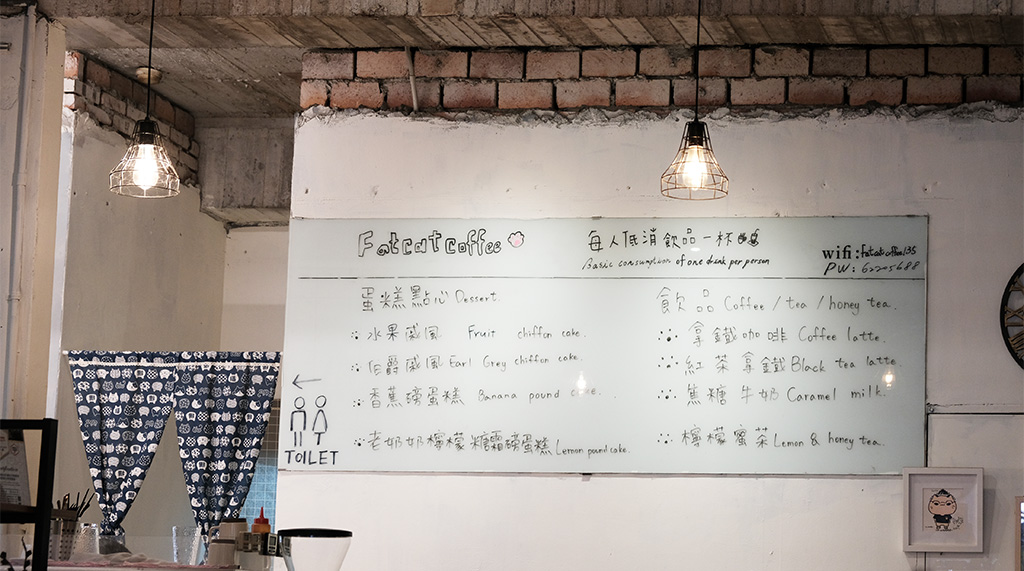 Fatcatcoffee
每人低消飲品一杯
Basic consumption of one drink per person
wifi: fatcatcoffee135
PW: 62205688
蛋糕點心 Dessert.
水果戚風 Fruit chiffon cake.
伯爵戚風 Earl Grey chiffon cake.
香蕉磅蛋糕 Banana pound cake.
老奶奶檸檬糖霜磅蛋糕 Lemon pound cake.
飲品 Coffee / tea / honey tea.
拿鐵咖啡 Coffee latte.
紅茶拿鐵 Black tea latte.
焦糖牛奶 Caramel milk.
檸檬蜜茶 Lemon & honey tea.
TOILET